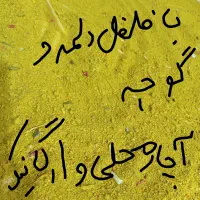 با فلفل دلمه و
گوجه
آچار محلی و ارگانیک